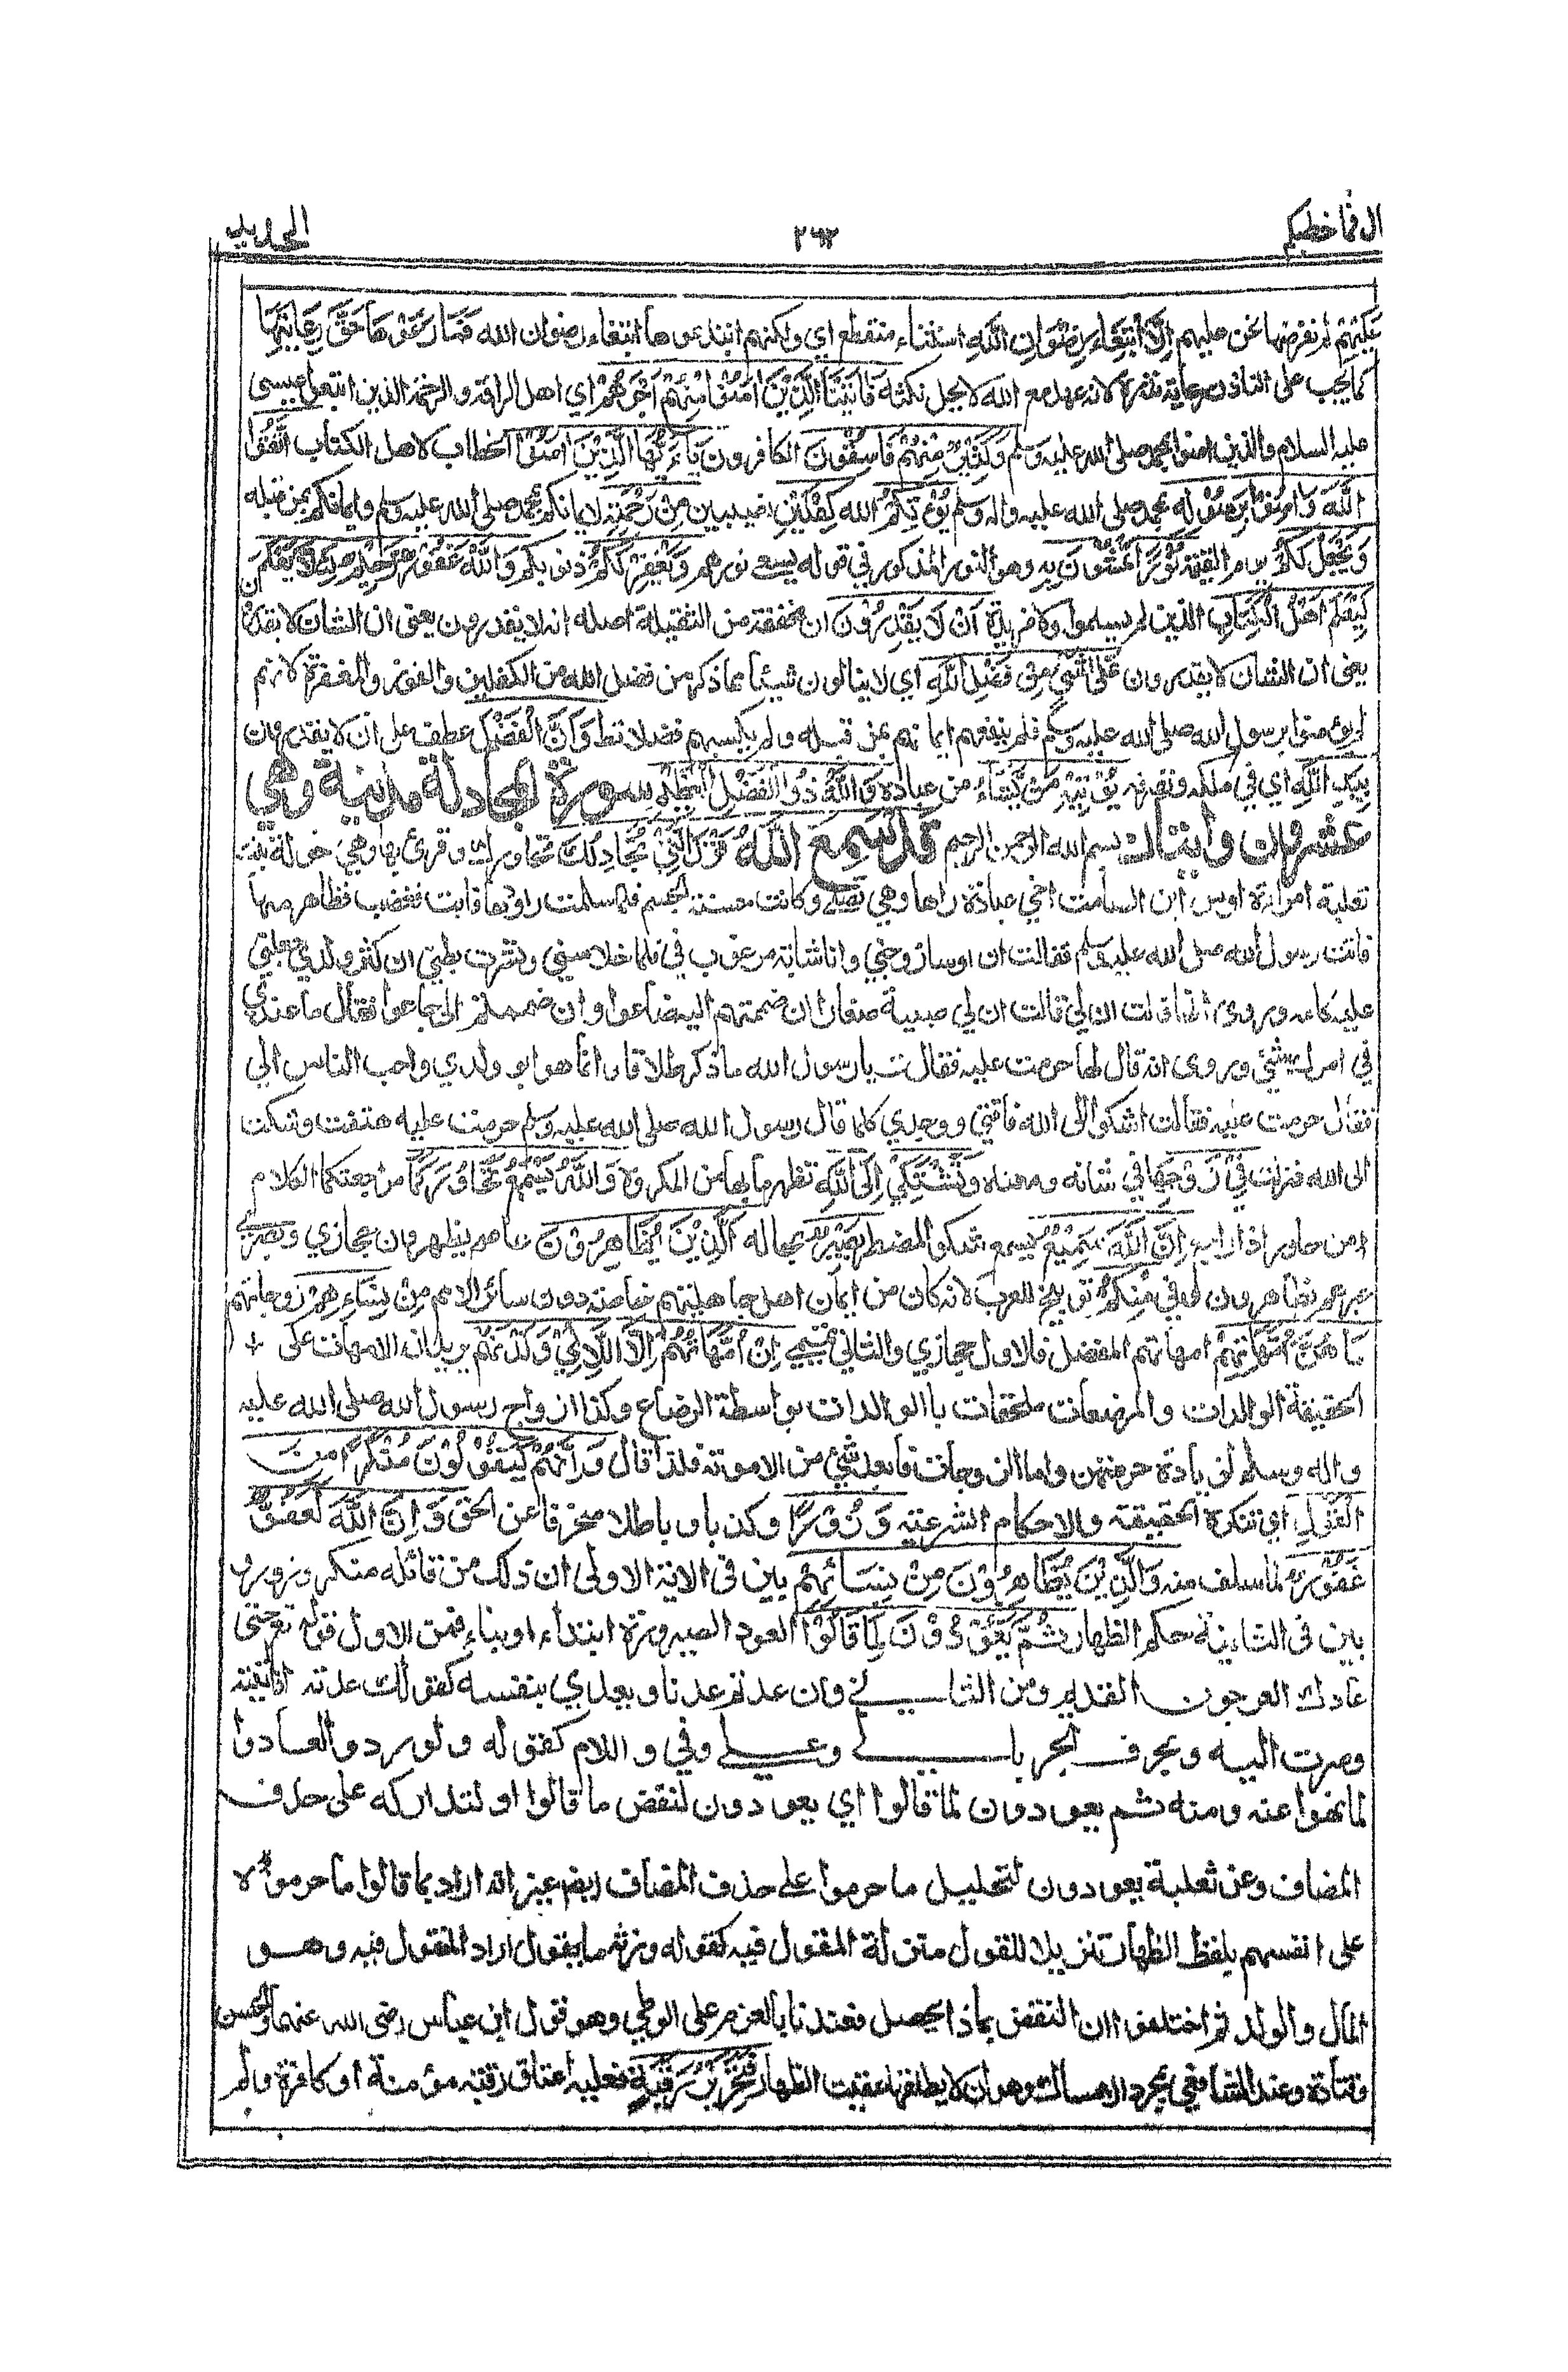 ال فما خطبكم ٢٦٢ الحديد
عَلَيْهِمْ لم نفرضها نحن عليهم إِلَّا ابْتِغَاءَ رِضْوَانِ اللَّهِ استثناء منقطع اي ولكنهم ابتدعوها ابتغاء رضوان الله فَمَا رَعَوْهَا حَقَّ رِعَايَتِهَا
كما يجب على الناذر رعاية نذره لانه عهد مع الله لا يحل نكثه فَآتَيْنَا الَّذِيْنَ اٰمَنُوْا مِنْهُمْ اَجْرَهُمْ اي اهل الرافة والرحمة الذين اتبعوا عيسى
عليه السلام والذين امنوا بمحمد صلى الله عليه وسلم وَكَثِيْرٌ مِنْهُمْ فَاسِقُوْنَ الكافرون يَا اَيُّهَا الَّذِيْنَ اٰمَنُوْا الخطاب لاهل الكتاب اتَّقُوْا
اللَّهَ وَاٰمِنُوْا بِرَسُوْلِهٖ محمد صلى الله عليه واله وسلم يُؤْتِكُمْ الله كِفْلَيْنِ نصيبين مِنْ رَحْمَتِهٖ لايمانكم بمحمد صلى الله عليه وسلم وايمانكم بمن قبله
وَيَجْعَلْ لَكُمْ يوم القيمة نُوْرًا تَمْشُوْنَ بِهٖ وهو النور المذكور في قوله يسعى نورهم وَيَغْفِرْ لَكُمْ ذنوبكم وَاللَّهُ غَفُوْرٌ رَحِيْمٌ لِئَلَّا يَعْلَمَ
لِيَعْلَمَ اَهْلُ الْكِتَابِ الذين لم يسلموا ولا مزيدة اَنْ لَا يَقْدِرُوْنَ ان مخففة من الثقيلة اصله انه لا يقدرون يعني ان الشان لا يقدرون
يعني ان الشان لا يقدرون عَلٰى شَيْءٍ مِنْ فَضْلِ اللّٰهِ اي لا ينالون شيئا مما ذكر من فضل الله من الكفلين والنور والمغفرة لانهم
لم يؤمنوا برسول الله صلى الله عليه وسلم فلم ينفعهم ايمانهم بمن قبله ولم يكسبهم فضلا قط وَاَنَّ الْفَضْلَ عطف على ان لا يقدرون
بِيَدِ اللّٰهِ اي في ملكه وتصرفه يُؤْتِيْهِ مَنْ يَّشَاءُ من عباده وَاللّٰهُ ذُو الْفَضْلِ الْعَظِيْمِ سورة المجادلة مدنية وهي
عشرون وايتان بسم الله الرحمن الرحيم قَدْ سَمِعَ اللّٰهُ قَوْلَ الَّتِيْ تُجَادِلُكَ تحاورك وقرئ بها وهي خولة بنت
ثعلبة امراة اوس ابن الصامت اخي عبادة راها وهي تصلي وكانت حسنة الجسم فلما سلمت راودها فابت فغضب فظاهر منها
فاتت رسول الله صلى الله عليه وسلم فقالت ان اوسا تزوجني وانا شابة مرغوب في فلما خلا سني ونثرت بطني اي كثر ولدي جعلني
عليه كامه وروى انها قالت ان لي صبية صغارا ان ضممتهم اليه ضاعوا وان ضممتهم الي جاعوا فقال ما عندي
في امرك شيئ وروى انه قال لها حرمت عليه فقالت يا رسول الله ما ذكر طلاقا وانما هو ابو ولدي واحب الناس الي
فقال حرمت عليه فقالت اشكو الى الله فاقتي ووجدي كلما قال رسول الله صلى الله عليه وسلم حرمت عليه هتفت وشكت
الى الله فنزلت فِيْ زَوْجِهَا في شانه ومعناه وَتَشْتَكِيْ اِلَى اللّٰهِ تظهر ما بها من المكروه وَاللّٰهُ يَسْمَعُ تَحَاوُرَكُمَا مراجعتكما الكلام
من حاور اذا راجع اِنَّ اللّٰهَ سَمِيْعٌ يسمع شكوى المضطر بَصِيْرٌ بحاله اَلَّذِيْنَ يُظَاهِرُوْنَ عاصم يظهرون حجازي وبصري
غيرهم يظاهرون في مِنْكُمْ توبيخ للعرب لانه كان من ايمان اهل جاهليتهم خاصة دون سائر الامم مِنْ نِسَاءِهِمْ زوجاتهم
مَا هُنَّ اُمَّهَاتِهِمْ امهاتهم المفضل فالاول حجازي والثاني تميمي اِنْ اُمَّهَاتُهُمْ اِلَّا اللَّائِيْ وَلَدْنَهُمْ يريد ان الامهات على
الحقيقة الوالدات والمرضعات ملحقات بالوالدات بواسطة الرضاع وكذا ازواج رسول الله صلى الله عليه
واله وسلم لزيادة حرمتهن واما الزوجات فابعد شيئ من الامومة فلذا قال وَاِنَّهُمْ لَيَقُوْلُوْنَ مُنْكَرًا مِنَ
الْقَوْلِ اي تنكره الحقيقة والاحكام الشرعية وَزُوْرًا وكذبا وباطلا منحرفا عن الحق وَاِنَّ اللّٰهَ لَعَفُوٌّ
غَفُوْرٌ لما سلف منه وَالَّذِيْنَ يُظَاهِرُوْنَ مِنْ نِسَائِهِمْ بين في الاية الاولى ان ذلك من قائله منكر وزور
بين في الثانية حكم الظهار ثُمَّ يَعُوْدُوْنَ لِمَا قَالُوْا العود الصيرورة ابتداء او بناء فمن الاول قوله تع حتى
عاد كالعرجون القديم ومن الثاني وان عدتم عدنا ويعدى بنفسه كقولك عدته اذا اتيته
وصرت اليه وبحرف الجر بالى وعلى وفي واللام كقوله ولو ردوا لعادوا
لما نهوا عنه ومنه ثم يعودون لما قالوا اي يعودون لنقض ما قالوا او لتداركه على حذف
المضاف وعن ثعلبة يعودون لتحليل ما حرموا على حذف المضاف ايضا غير انه اراد بما قالوا ما حرموه
على انفسهم بلفظ الظهار تنزيلا للقول منزلة المقول فيه كقوله ونرثه ما يقول اراد المقول فيه وهو
المال والولد ثم اختلفوا ان النقض بماذا يحصل فعندنا بالعزم على الوطي وهو قول ابن عباس رضى الله عنهما والحسن
وقتادة وعند الشافعي بمجرد الامساك وهو ان لا يطلقها عقيب الظهار فَتَحْرِيْرُ رَقَبَةٍ فعليه اعتاق رقبة مؤمنة او كافرة ولم